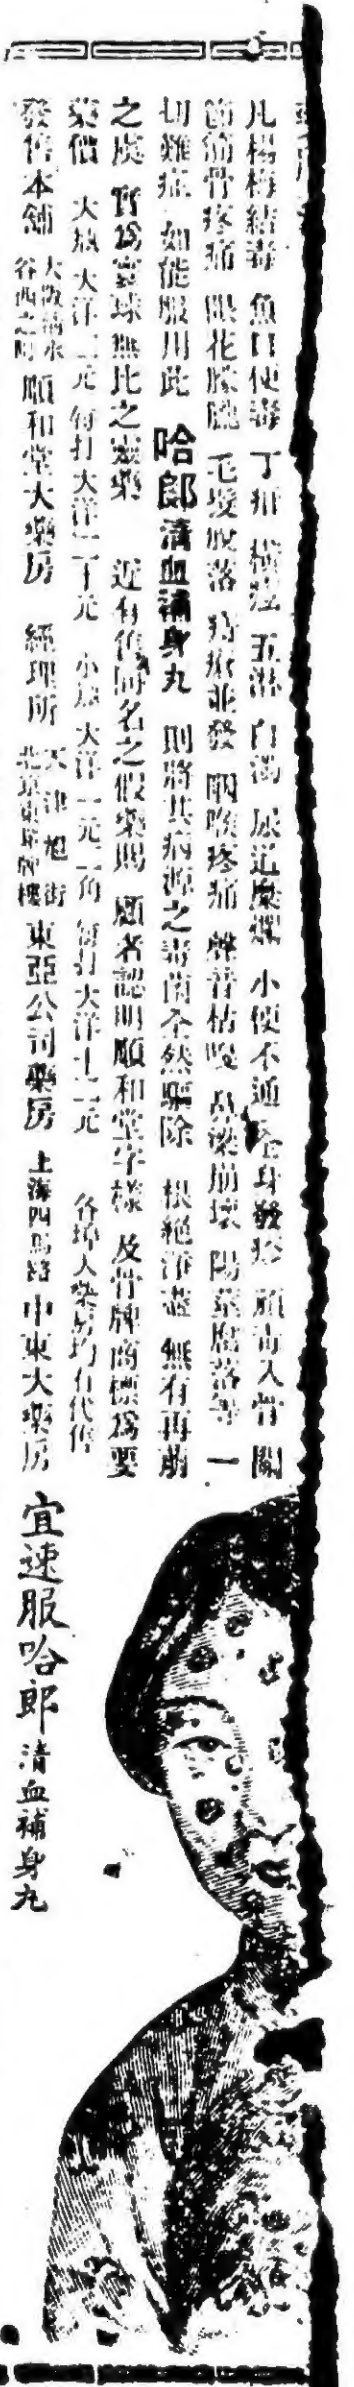 凡楊梅結毒 魚口便毒 丁疳 橫痃 五淋 白濁 尿道糜爛 小便不通 全身發疹 頑毒入骨 關
節筋骨疼痛 眼花朦朧 毛髮脫落 痔瘡並發 咽喉疼痛 聲音枯啞 鼻梁崩壞 陽莖腐落等 一
切難症 如能服用此 哈郎清血補身丸 則將其病源之毒菌全然驅除 根絕淨盡 無有再萠
之虞 實爲寰球無比之靈藥 近有售同名之假藥 顧者認明順和堂字樣 及骨牌商標爲要
藥價 大瓶大洋二元 每打大洋二十元 小瓶大洋一元二角 每打大洋十二元 各埠大藥房均有代售
發售本舖 大阪清水谷西之町 順和堂大藥房 經理所 天津旭街 北京東單牌樓 東亞公司藥房 上海四馬路 中東大藥房
宜速服哈郎清血補身丸